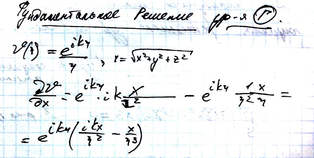 Фундаментальное решение ур-я Г.
v(r) = e^{ikr}/r, r = √(x²+y²+z²)
∂v/∂x = e^{ikr} · ik x/r² − e^{ikr} 1·x/r² r =
= e^{ikr} (ikx/r² − x/r³)